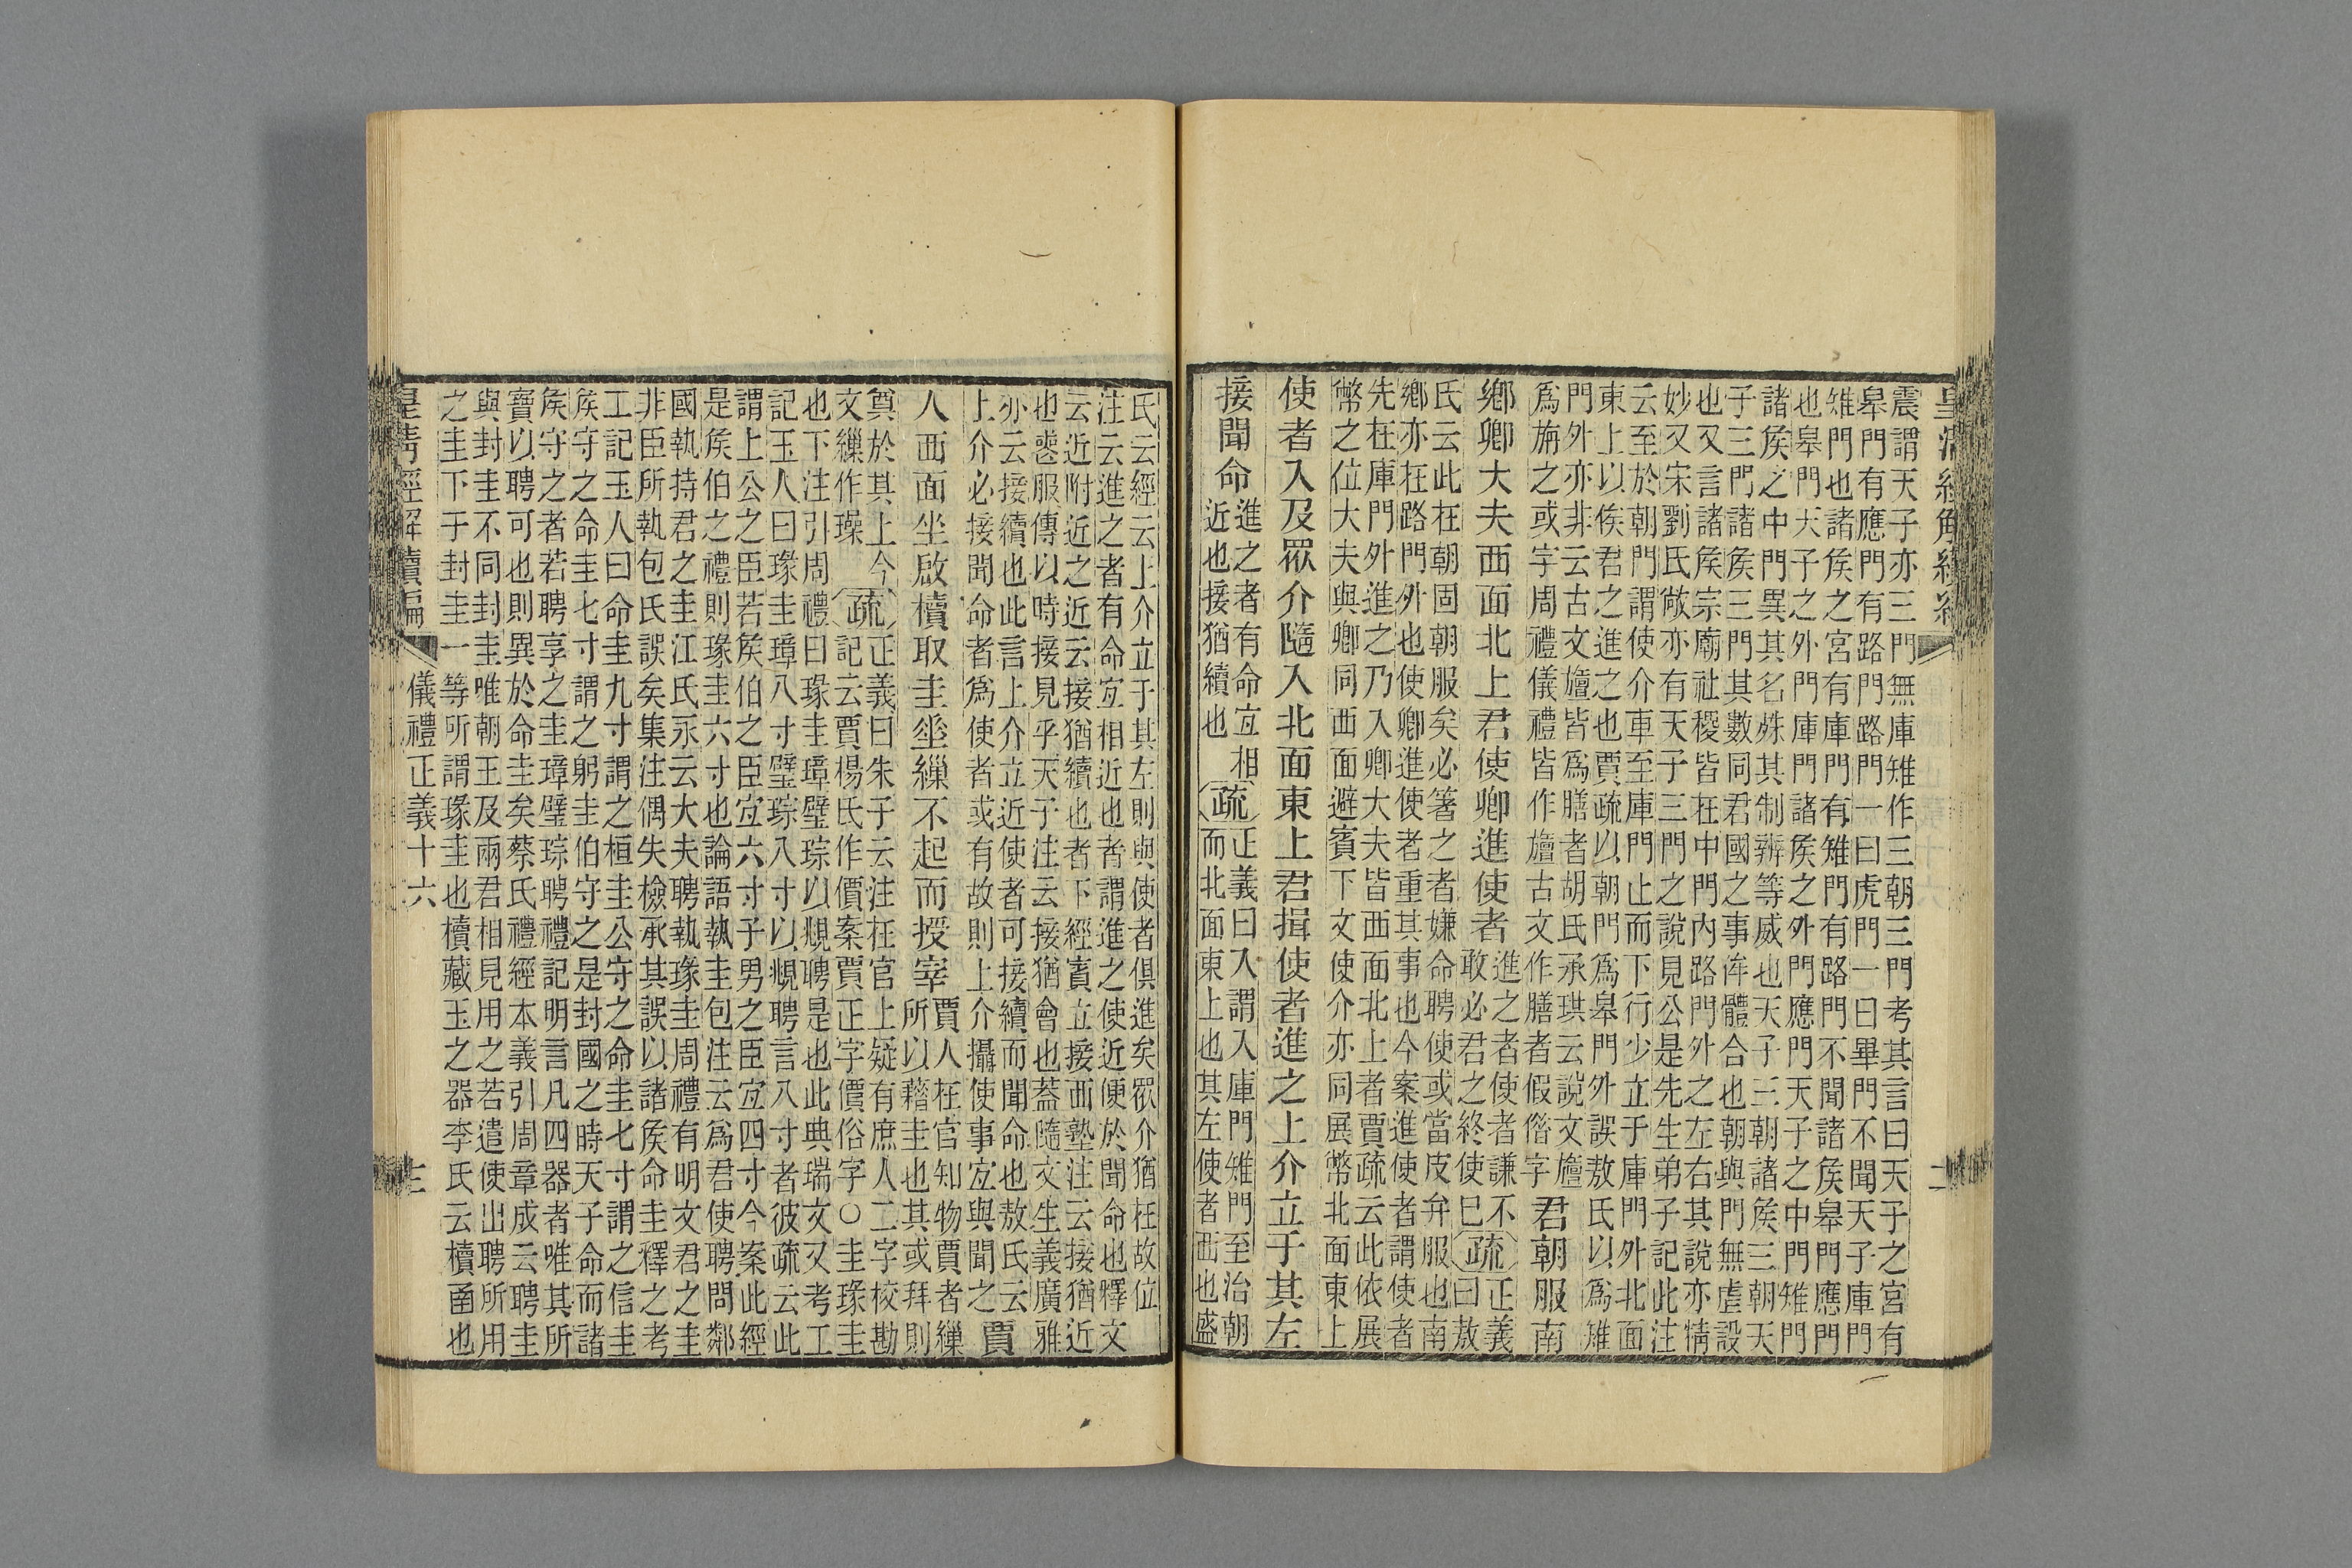 皇清經解續編
震謂天子亦三門無庫雉作三朝三門考其言曰天子之宮有
皋門有應門有路門路門一曰虎門一曰畢門不聞天子庫門
雉門也諸矦之宮有庫門有雉門有路門不聞諸矦皋門應門
也皋門天子之外門庫門諸矦之外門應門天子之中門雉門
諸矦之中門異其名殊其制辨等威也天子三朝諸矦三朝天
子三門諸矦三門其數同君國之事侔體合也朝與門無虛設
也又言諸矦宗廟社稷皆在中門內路門外之左右其說亦精
妙又宋劉氏敞亦有天子三門之說見公是先生弟子記此注
云至於朝門謂使介車至庫門止而下行少立于庫門外北面
東上以俟君之進之也賈疏以朝門爲皋門外誤敖氏以爲雉
門外亦非云古文旜皆爲膳者胡氏承珙云說文旜
爲旃之或字周禮儀禮皆作旜古文作膳者假借字
君朝服南
鄉卿大夫西面北上君使卿進使者
進之者使者謙不
敢必君之終使巳
疏
正義
曰敖
氏云此在朝固朝服矣必箸之者嫌命聘使或當皮弁服也南
鄉亦在路門外也使卿進使者重其事也今案進使者謂使者
先在庫門外進之乃入卿大夫皆西面北上者賈疏云此依展
幣之位大夫與卿同西面避賓下文使介亦同展幣北面東上
使者入及眾介隨入北面東上君揖使者進之上介立于其左
接聞命
進之者有命宐相
近也接猶續也
疏
正義曰入謂入庫門雉門至治朝
而北面東上也其左使者西也盛
氏云經云上介立于其左則與使者俱進矣眾介猶在故位
注云進之者有命宐相近也者謂進之使近便於聞命也釋文
云近附近之近云接猶續也者下經賓立接西塾注云接猶近
也喪服傳以時接見乎天子注云接猶會也蓋隨文生義廣雅
亦云接續也此言上介立近使者可接續而聞命也敖氏云
上介必接聞命者爲使者或有故則上介攝使事宐與聞之
賈
人西面坐啟櫝取圭垂繅不起而授宰
賈人在官知物賈者繅
所以藉圭也其或拜則
奠於其上今
文繅作璪
疏
正義曰朱子云注在官上疑有庶人二字校勘
記云賈楊氏作價案賈正字價俗字○圭瑑圭
也下注引周禮曰瑑圭璋璧琮以覜聘是也此典瑞文又考工
記玉人曰瑑圭璋八寸璧琮八寸以覜聘言八寸者彼疏云此
謂上公之臣若矦伯之臣宐六寸子男之臣宐四寸今案此經
是矦伯之禮則瑑圭六寸也論語執圭包注云爲君使聘問鄰
國執持君之圭江氏永云大夫聘執瑑圭周禮有明文君之圭
非臣所執包氏誤矣集注偶失檢承其誤以諸矦命圭釋之考
工記玉人曰命圭九寸謂之桓圭公守之命圭七寸謂之信圭
矦守之命圭七寸謂之躬圭伯守之是封國之時天子命而諸
矦守之者若聘享之圭璋璧琮聘禮記明言凡四器者唯其所
寶以聘可也則異於命圭矣蔡氏禮經本義引周章成云聘圭
與封圭不同封圭唯朝王及兩君相見用之若遣使出聘所用
之圭下于封圭一等所謂瑑圭也櫝藏玉之器李氏云櫝函也
皇清經解續編　儀禮正義十六